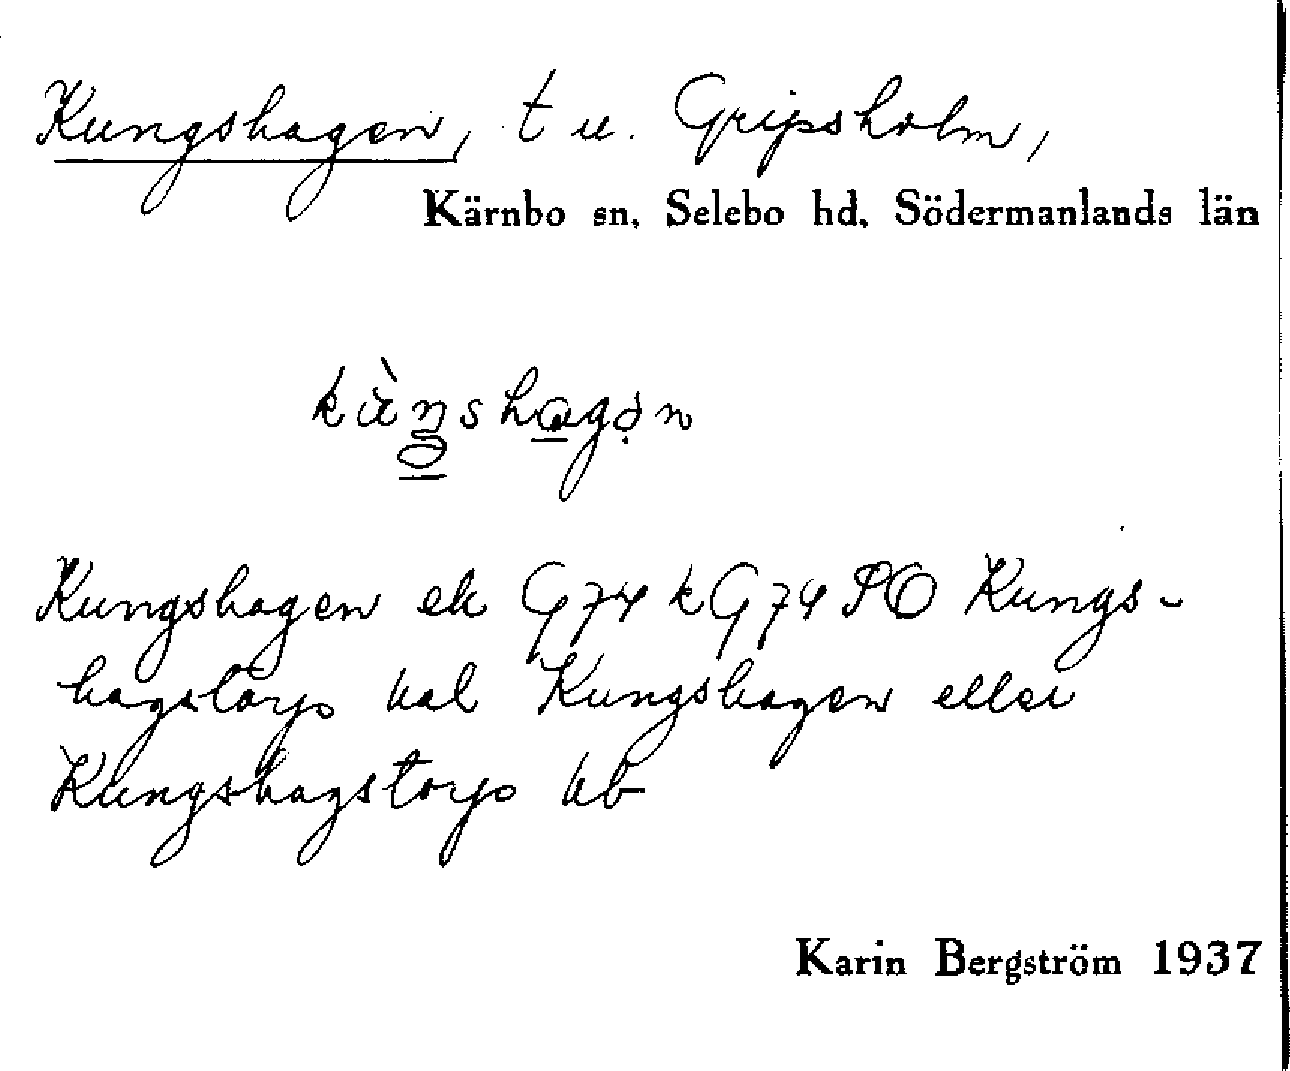 Kungshagen, t u. Gripsholm,
Kärnbo sn, Selebo hd, Södermanlands län
kùŋshagən
Kungshagen ek G74 kG74 PO Kungs-
hagstorp hal Kungshagen eller
Kungshagstorp kb
Karin Bergström 1937